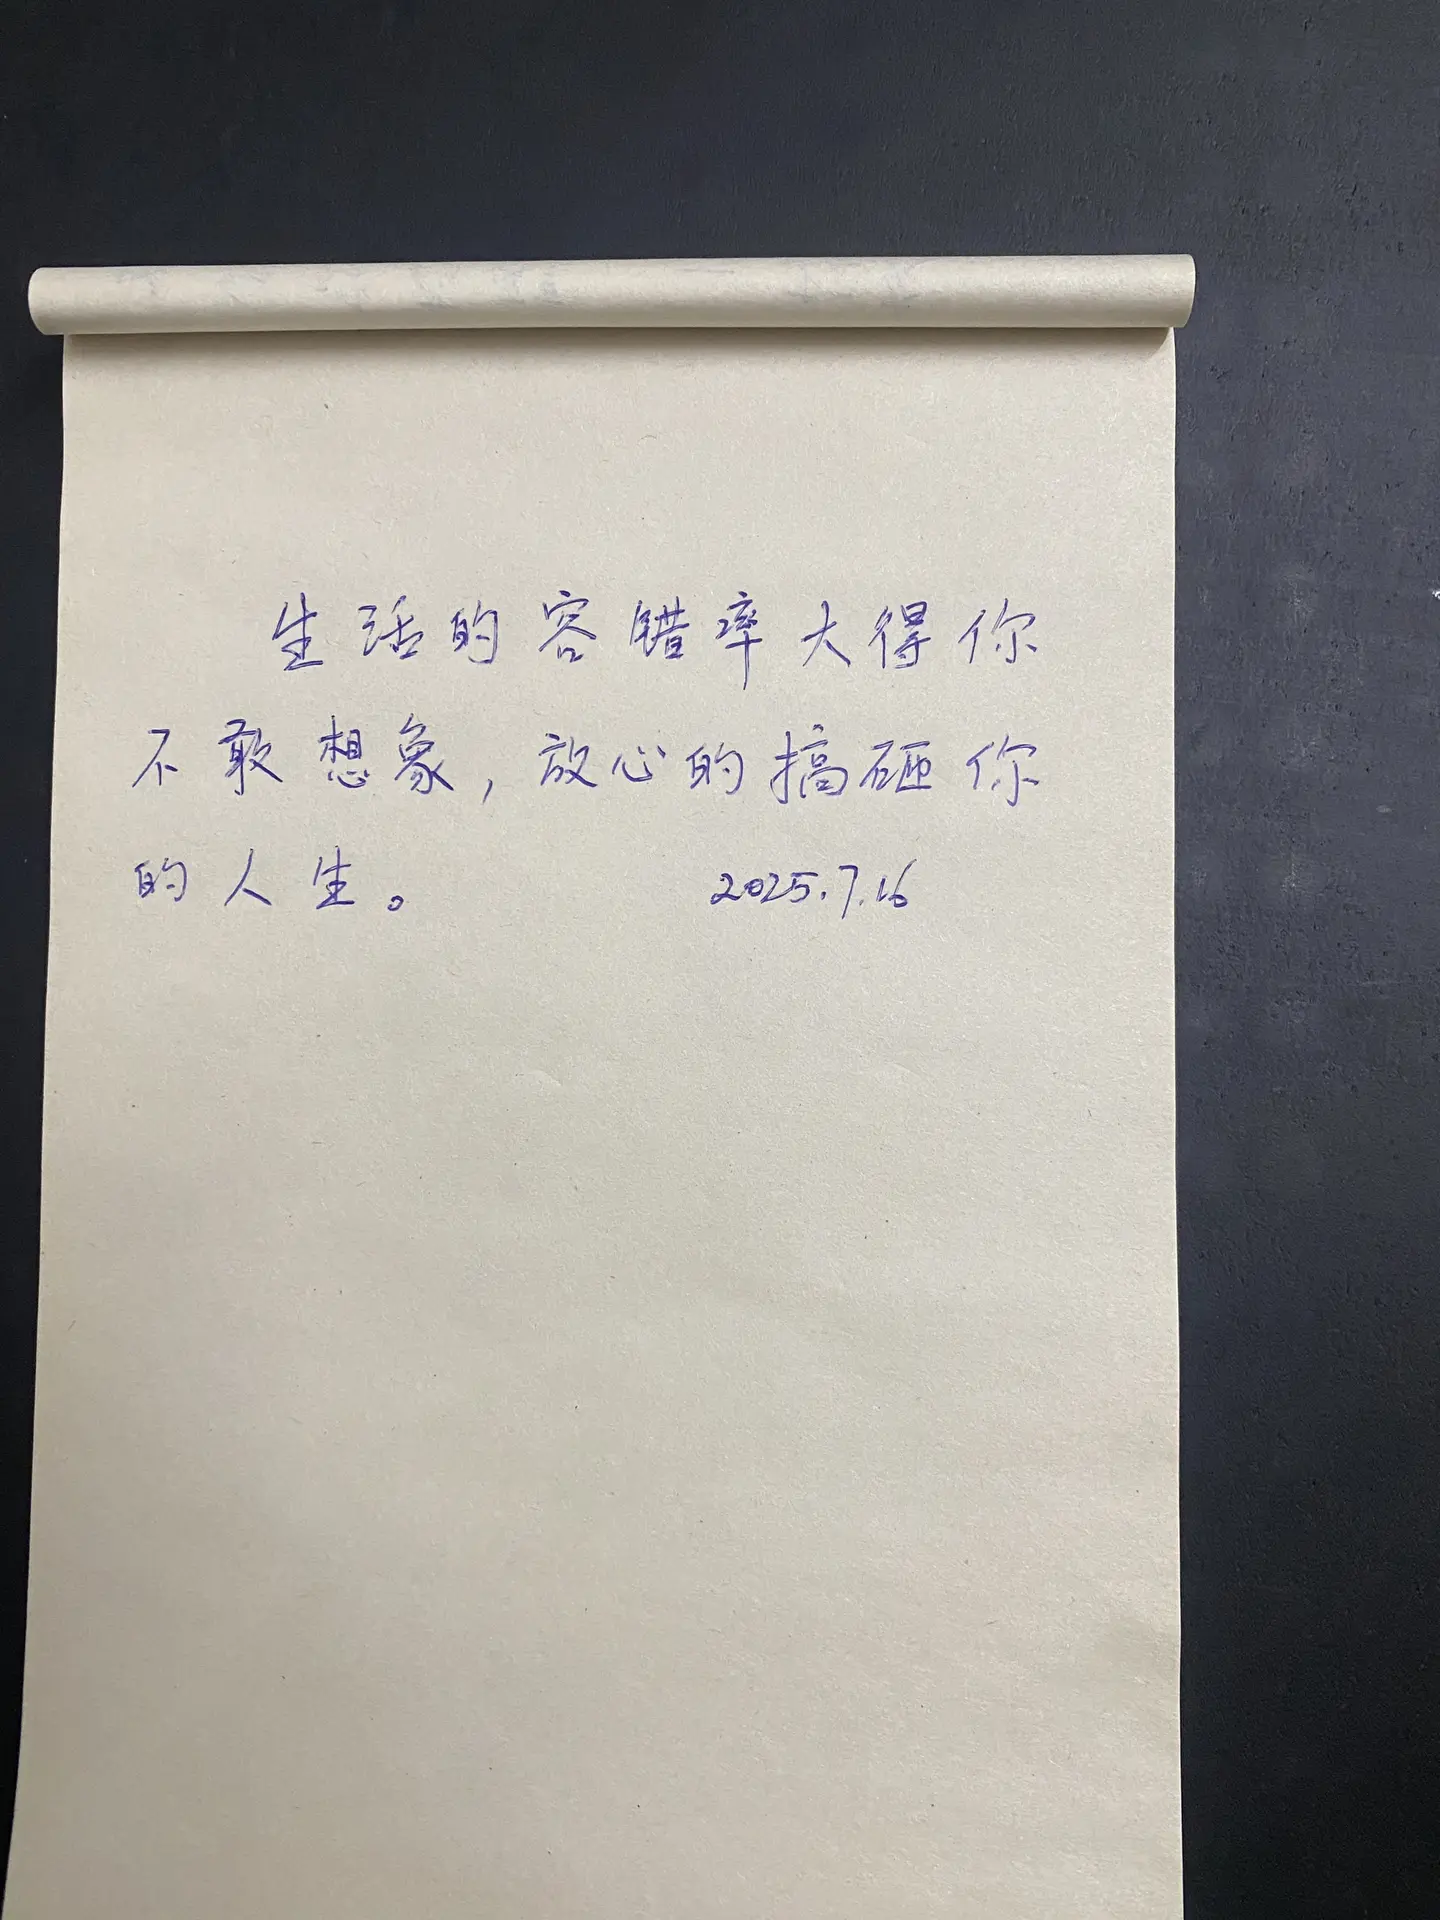 生活的容错率大得你
不敢想象，放心的搞砸你
的人生。 2025.7.16